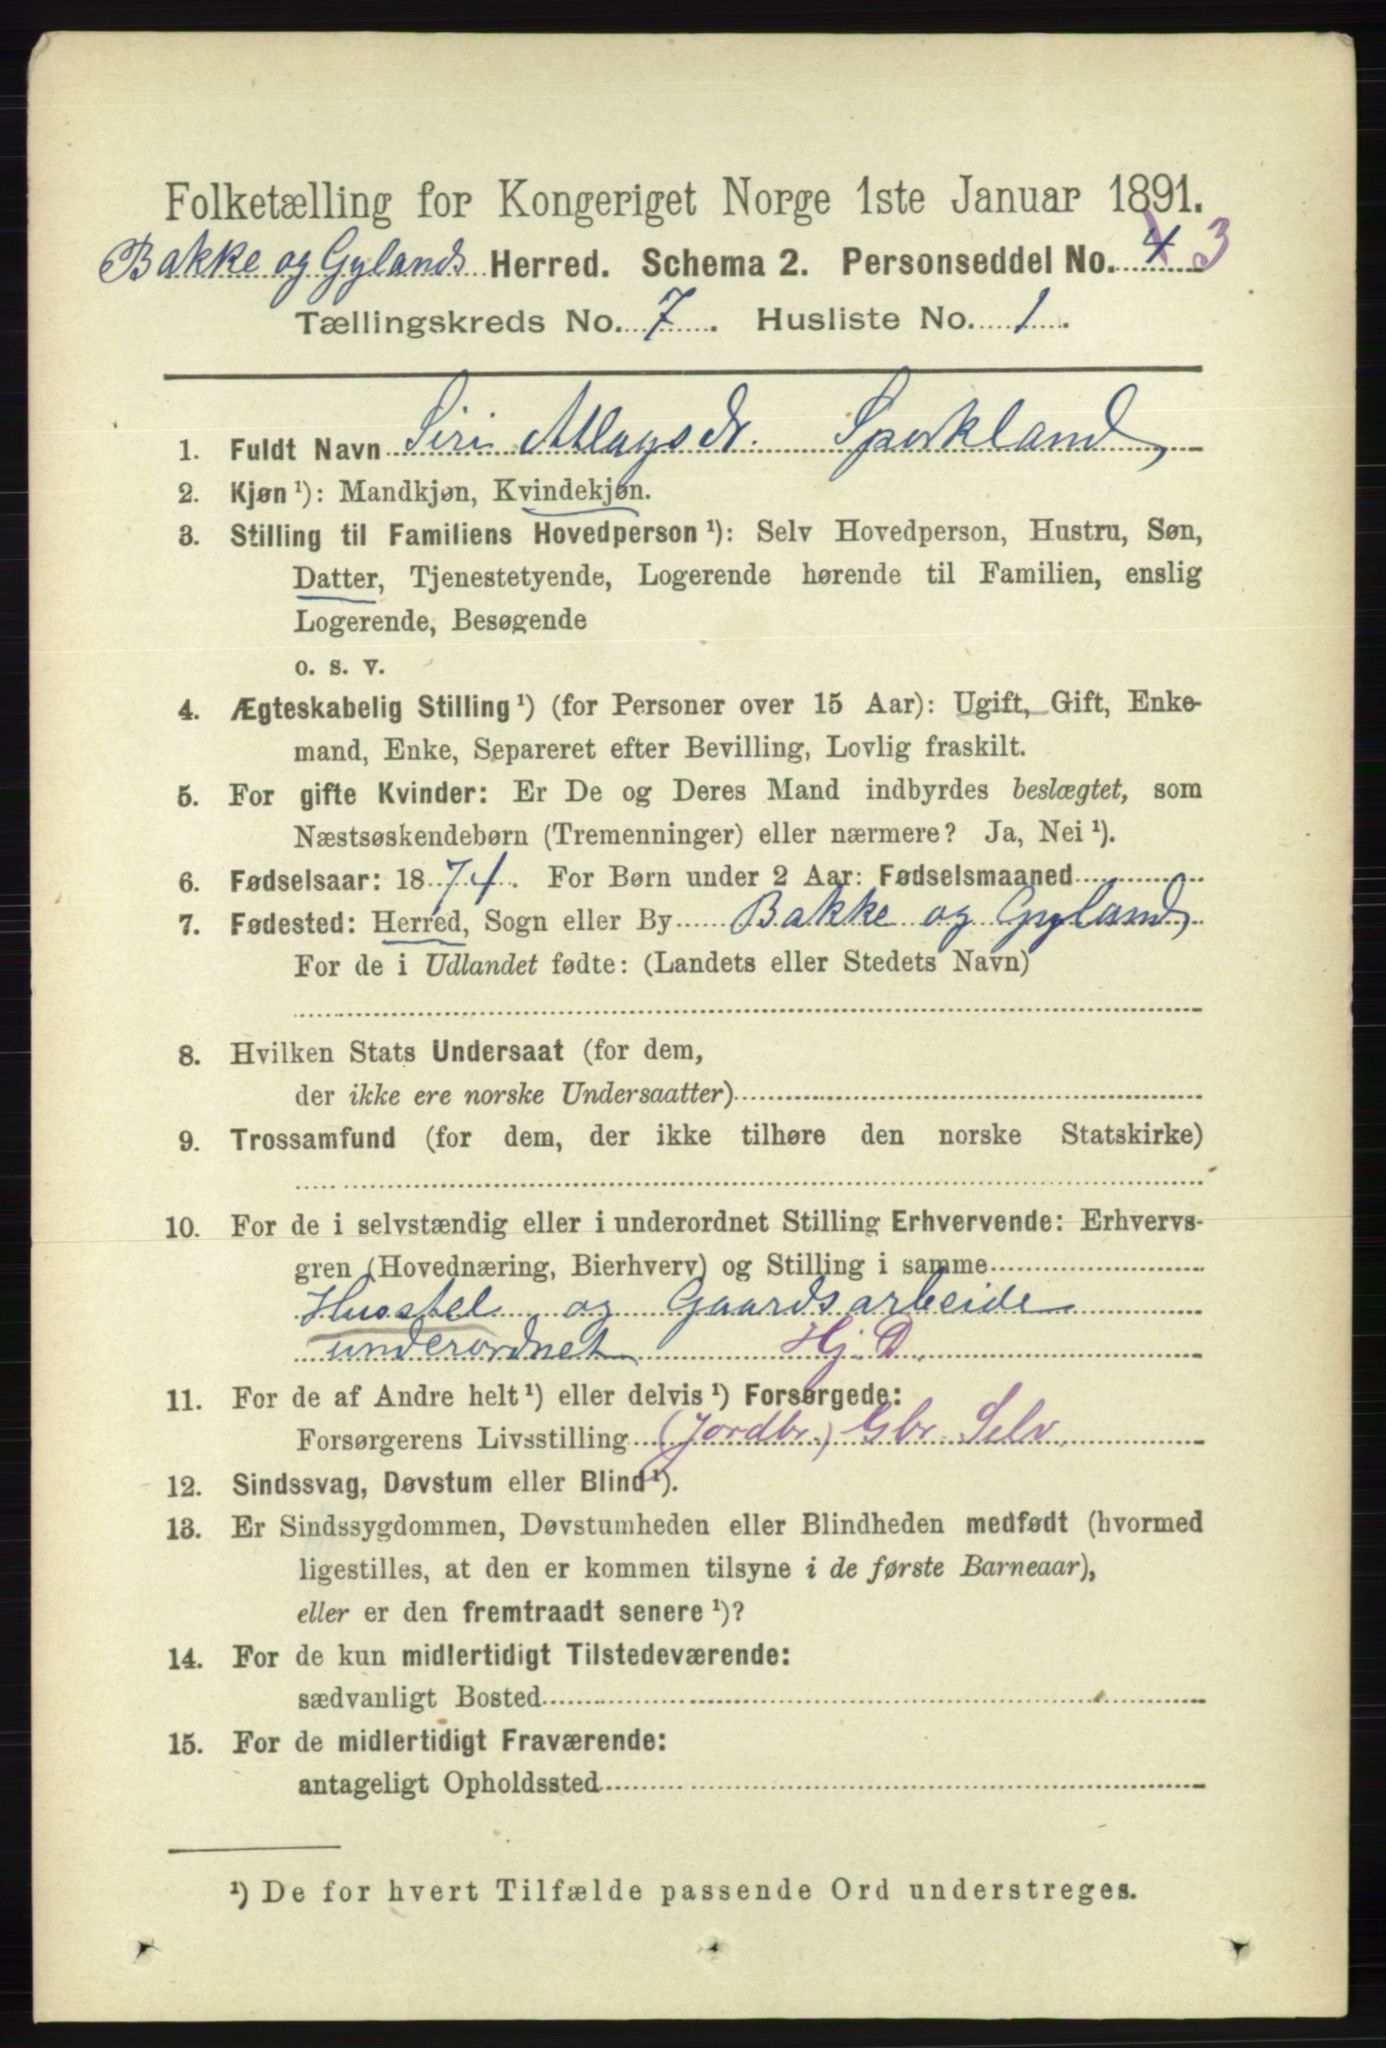 Folketælling for Kongeriget Norge 1ste Januar 1891.
Bakke og Gylands Herred. Schema 2. Personseddel No. 4 3
Tællingskreds No. 7. Husliste No. 1.
1. Fuldt Navn Siri Atlagsdr. Sporkland
2. Kjøn ¹): Mandkjøn, Kvindekjøn.
3. Stilling til Familiens Hovedperson ¹): Selv Hovedperson, Hustru, Søn,
Datter, Tjenestetyende, Logerende hørende til Familien, enslig
Logerende, Besøgende
o. s. v.
4. Ægteskabelig Stilling ¹) (for Personer over 15 Aar): Ugift, Gift, Enke-
mand, Enke, Separeret efter Bevilling, Lovlig fraskilt.
5. For gifte Kvinder: Er De og Deres Mand indbyrdes beslægtet, som
Næstsøskendebørn (Tremenninger) eller nærmere? Ja, Nei ¹).
6. Fødselsaar: 1874. For Børn under 2 Aar: Fødselsmaaned
7. Fødested: Herred, Sogn eller By Bakke og Gyland
For de i Udlandet fødte: (Landets eller Stedets Navn)
8. Hvilken Stats Undersaat (for dem,
der ikke ere norske Undersaatter)
9. Trossamfund (for dem, der ikke tilhøre den norske Statskirke)
10. For de i selvstændig eller i underordnet Stilling Erhvervende: Erhvervs-
gren (Hovednæring, Bierhverv) og Stilling i samme
Husstel og Gaardsarbeide
underordnet Hj. D.
11. For de af Andre helt ¹) eller delvis ¹) Forsørgede:
Forsørgerens Livsstilling (Jordbr.) Gbr. Selv.
12. Sindssvag, Døvstum eller Blind ¹).
13. Er Sindssygdommen, Døvstumheden eller Blindheden medfødt (hvormed
ligestilles, at den er kommen tilsyne i de første Barneaar),
eller er den fremtraadt senere ¹)?
14. For de kun midlertidigt Tilstedeværende:
sædvanligt Bosted
15. For de midlertidigt Fraværende:
antageligt Opholdssted
¹) De for hvert Tilfælde passende Ord understreges.